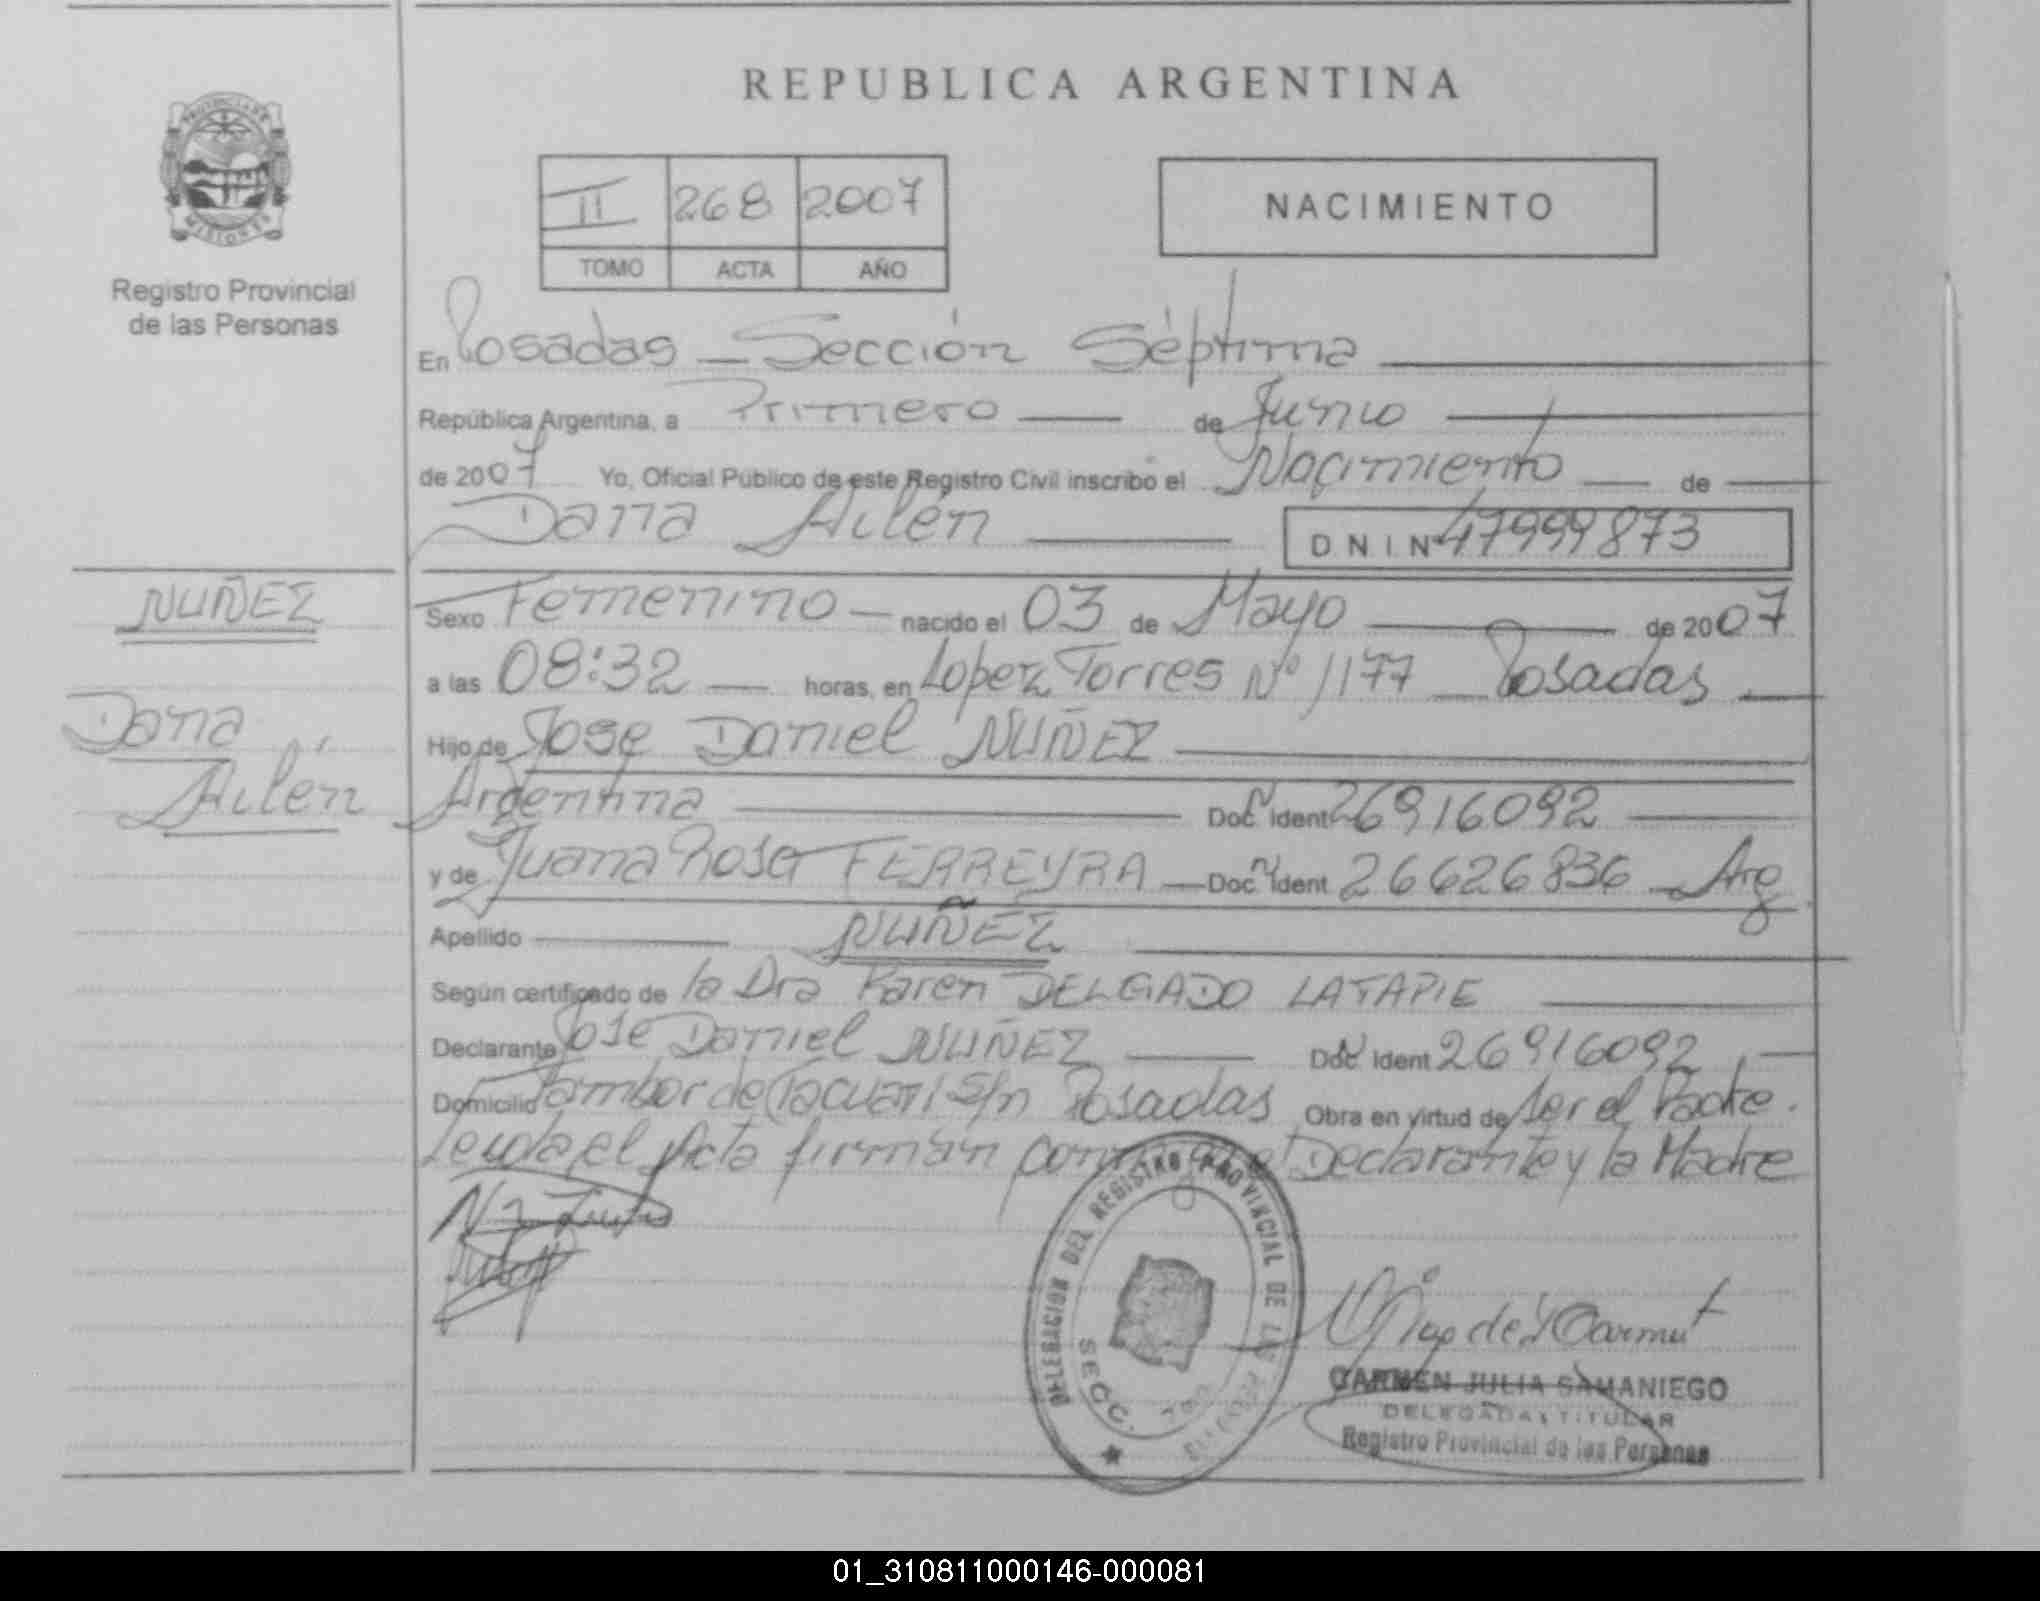 REPUBLICA ARGENTINA
PROVINCIA DE
MISIONES
Registro Provincial
de las Personas
II 268 2007
TOMO ACTA AÑO
NACIMIENTO
En Posadas — Sección Séptima
República Argentina, a Primero de Junio
de 2007 Yo, Oficial Público de este Registro Civil inscribo el Nacimiento de
Dana Ailén DNI Nº 47999873
NUÑEZ
Dana
Ailén
Sexo Femenino nacido el 03 de Mayo de 2007
a las 08:32 horas, en Lopez Torres Nº 1177 Posadas
Hijo de Jose Daniel NUÑEZ
Argentina Doc Ident 26916092
y de Juana Rosa FERREYRA Doc Ident 26626836 Arg
Apellido NUÑEZ
Según certificado de la Dra Karen DELGADO LATAPIE
Declarante Jose Daniel NUÑEZ Doc Ident 26916092
Domicilio Tambor de Tacuari S/n Posadas Obra en virtud de ser el Padre.
Leida el Acta firman Declarante y la Madre
DELEGACION DEL REGISTRO PROVINCIAL DE LAS
SECC.
CARMEN JULIA SAMANIEGO
DELEGADA TITULAR
Registro Provincial de las Personas
01_310811000146-000081